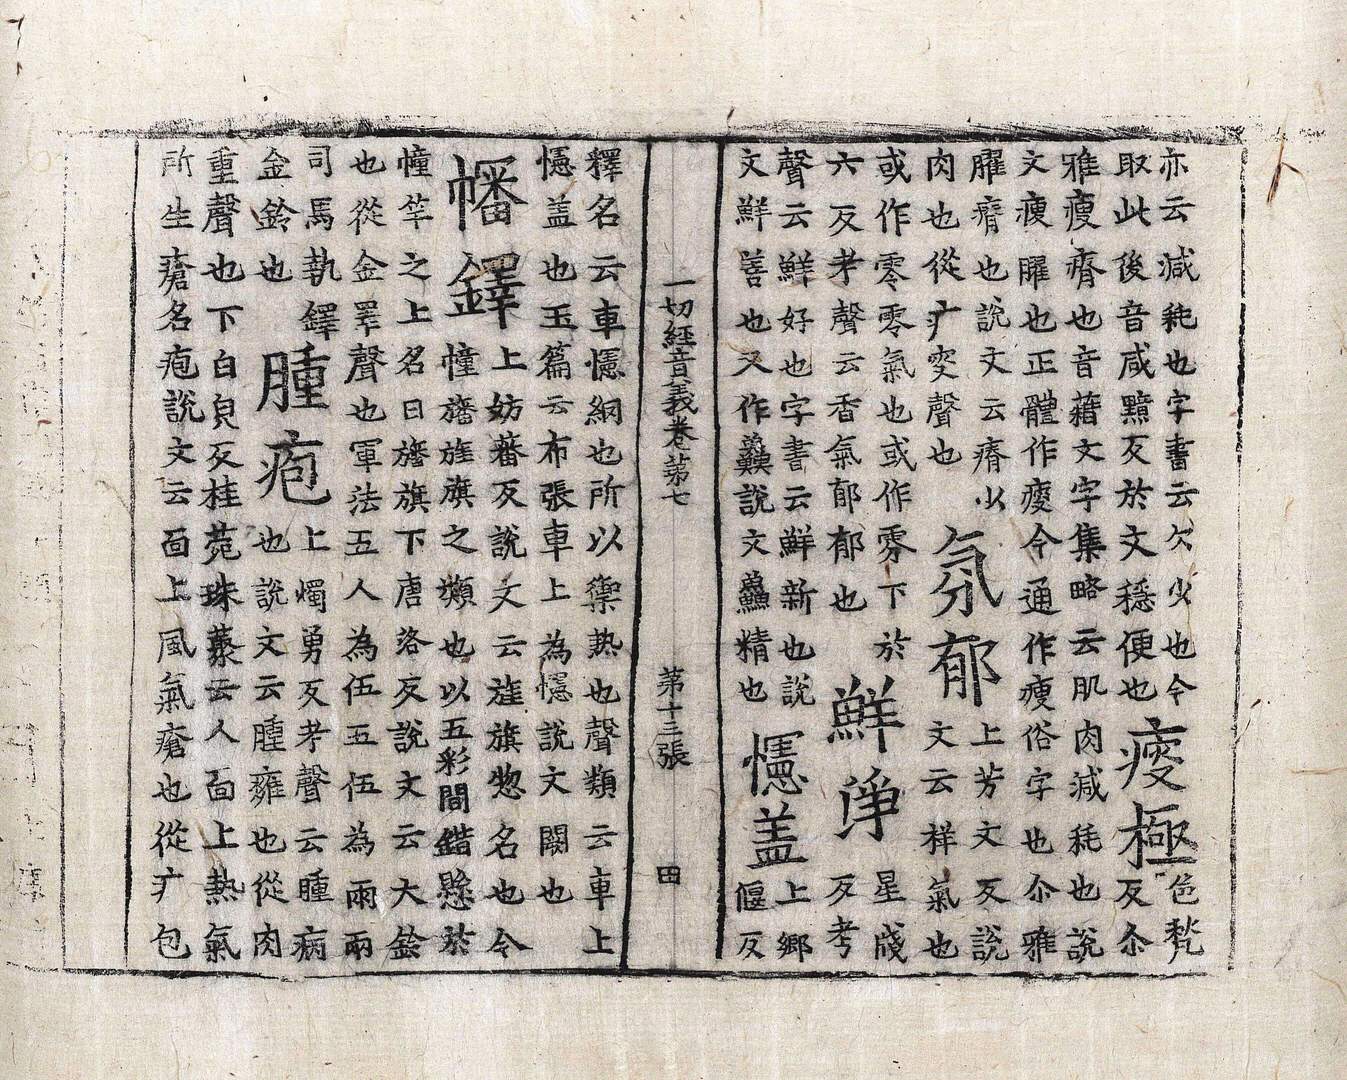 亦云減秏也字書云欠少也今
取此後音咸黤反於文穩便也
瘦極
色㽮
反尒
雅瘦瘠也音藉文字集略云肌肉減秏也說
文瘦臞也正體作㾐今通作瘦俗字也尒雅
臞瘠也說文云瘠少
肉也從疒叜聲也
氛郁
上芳文反說
文云祥氣也
或作零零氣也或作雰下於
六反考聲云香氣郁郁也
鮮淨
星㦮
反考
聲云鮮好也字書云鮮新也說
文鮮善也又作說文鱻精也
幰盖
上鄉
偃反
一切經音義卷第七 第十三張 四
釋名云車幰網也所以禦熱也聲類云車上
幰盖也玉篇云布張車上為幰說文闕也
幡鐸
上妨蕃反說文云旌旗惣名也今
幢旛旌旗之類也以五彩間錯懸於
幢竿之上名曰旛旗下唐洛反說文云大鈴
也從金睪聲也軍法五人為伍五伍為兩兩
司馬執鐸
金鈴也
腫疱
上燭勇反考聲云腫病
也說文云腫癰也從肉
重聲也下白皃反桂菀珠藂云人面上熱氣
所生瘡名疱說文云面上風氣瘡也從疒包